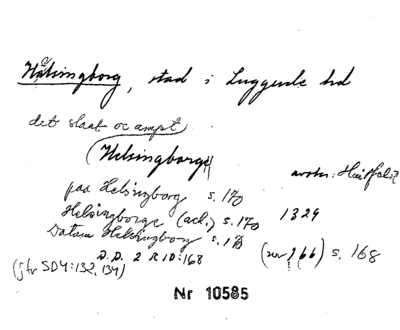 Hälsingborg, stad i Luggude hd
det slaat oc ampt
(Helsingborge)
avskr:
paa Helsingborg s. 170
Helsingborge (ack.) s. 170 1329
Datum Helsingborg s. 170
D.D. 2 R 10:168 (nr 166) s. 168
(jfr SD4:132, 134)
Nr 10585